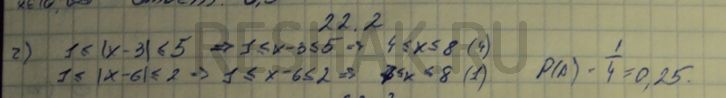 22.2
г) 1≤|x-3|≤5 ⇒ 1≤x-3≤5 ⇒ 4≤x≤8 (4)
1≤|x-6|≤2 ⇒ 1≤x-6≤2 ⇒ 7≤x≤8 (1) P(A) = 1/4 = 0,25.